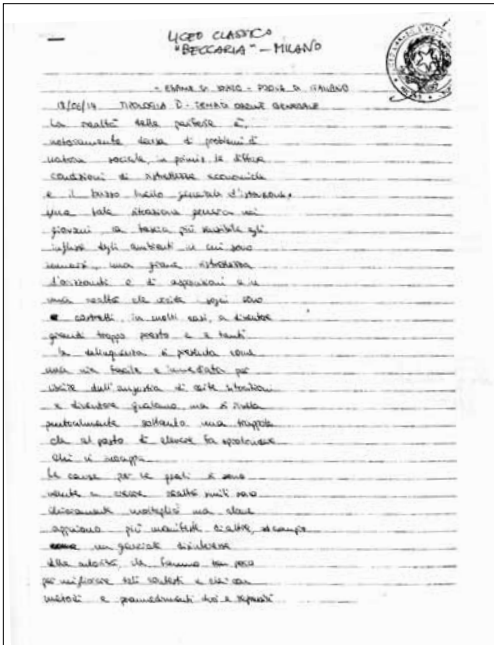 LICEO CLASSICO
"BECCARIA" – MILANO
- ESAME DI STATO - PROVA DI ITALIANO
18/06/14 TIPOLOGIA D - TEMA DI ORDINE GENERALE
La realtà delle periferie è,
notoriamente densa di problemi di
natura sociale, in primis le difficili
condizioni di ristrettezza economica
e il basso livello generale d'istruzione.
Una tale situazione genera nei
giovani, la fascia più sensibile agli
influssi degli ambienti in cui sono
immersi, una grave ristrettezza
d'orizzonti e di aspirazioni e in
una realtà che vieta i sogni sono
costretti, in molti casi, a diventare
grandi troppo presto e a tenti
la delinquenza si presenta come
una via facile e immediata per
uscire dall'angustia di certe situazioni
e diventare qualcuno, ma si rivela
puntualmente soltanto una trappola
che al posto di elevare fa sprofondare
chi vi incappa.
Le cause per le quali si sono
venute a creare realtà simili sono
chiaramente molteplici ma alcune
appaiono più manifeste di altre, ad esempio
un generale disinteresse
delle autorità, che fanno ben poco
per migliorare tali contesti e che con
metodi e provvedimenti duri e